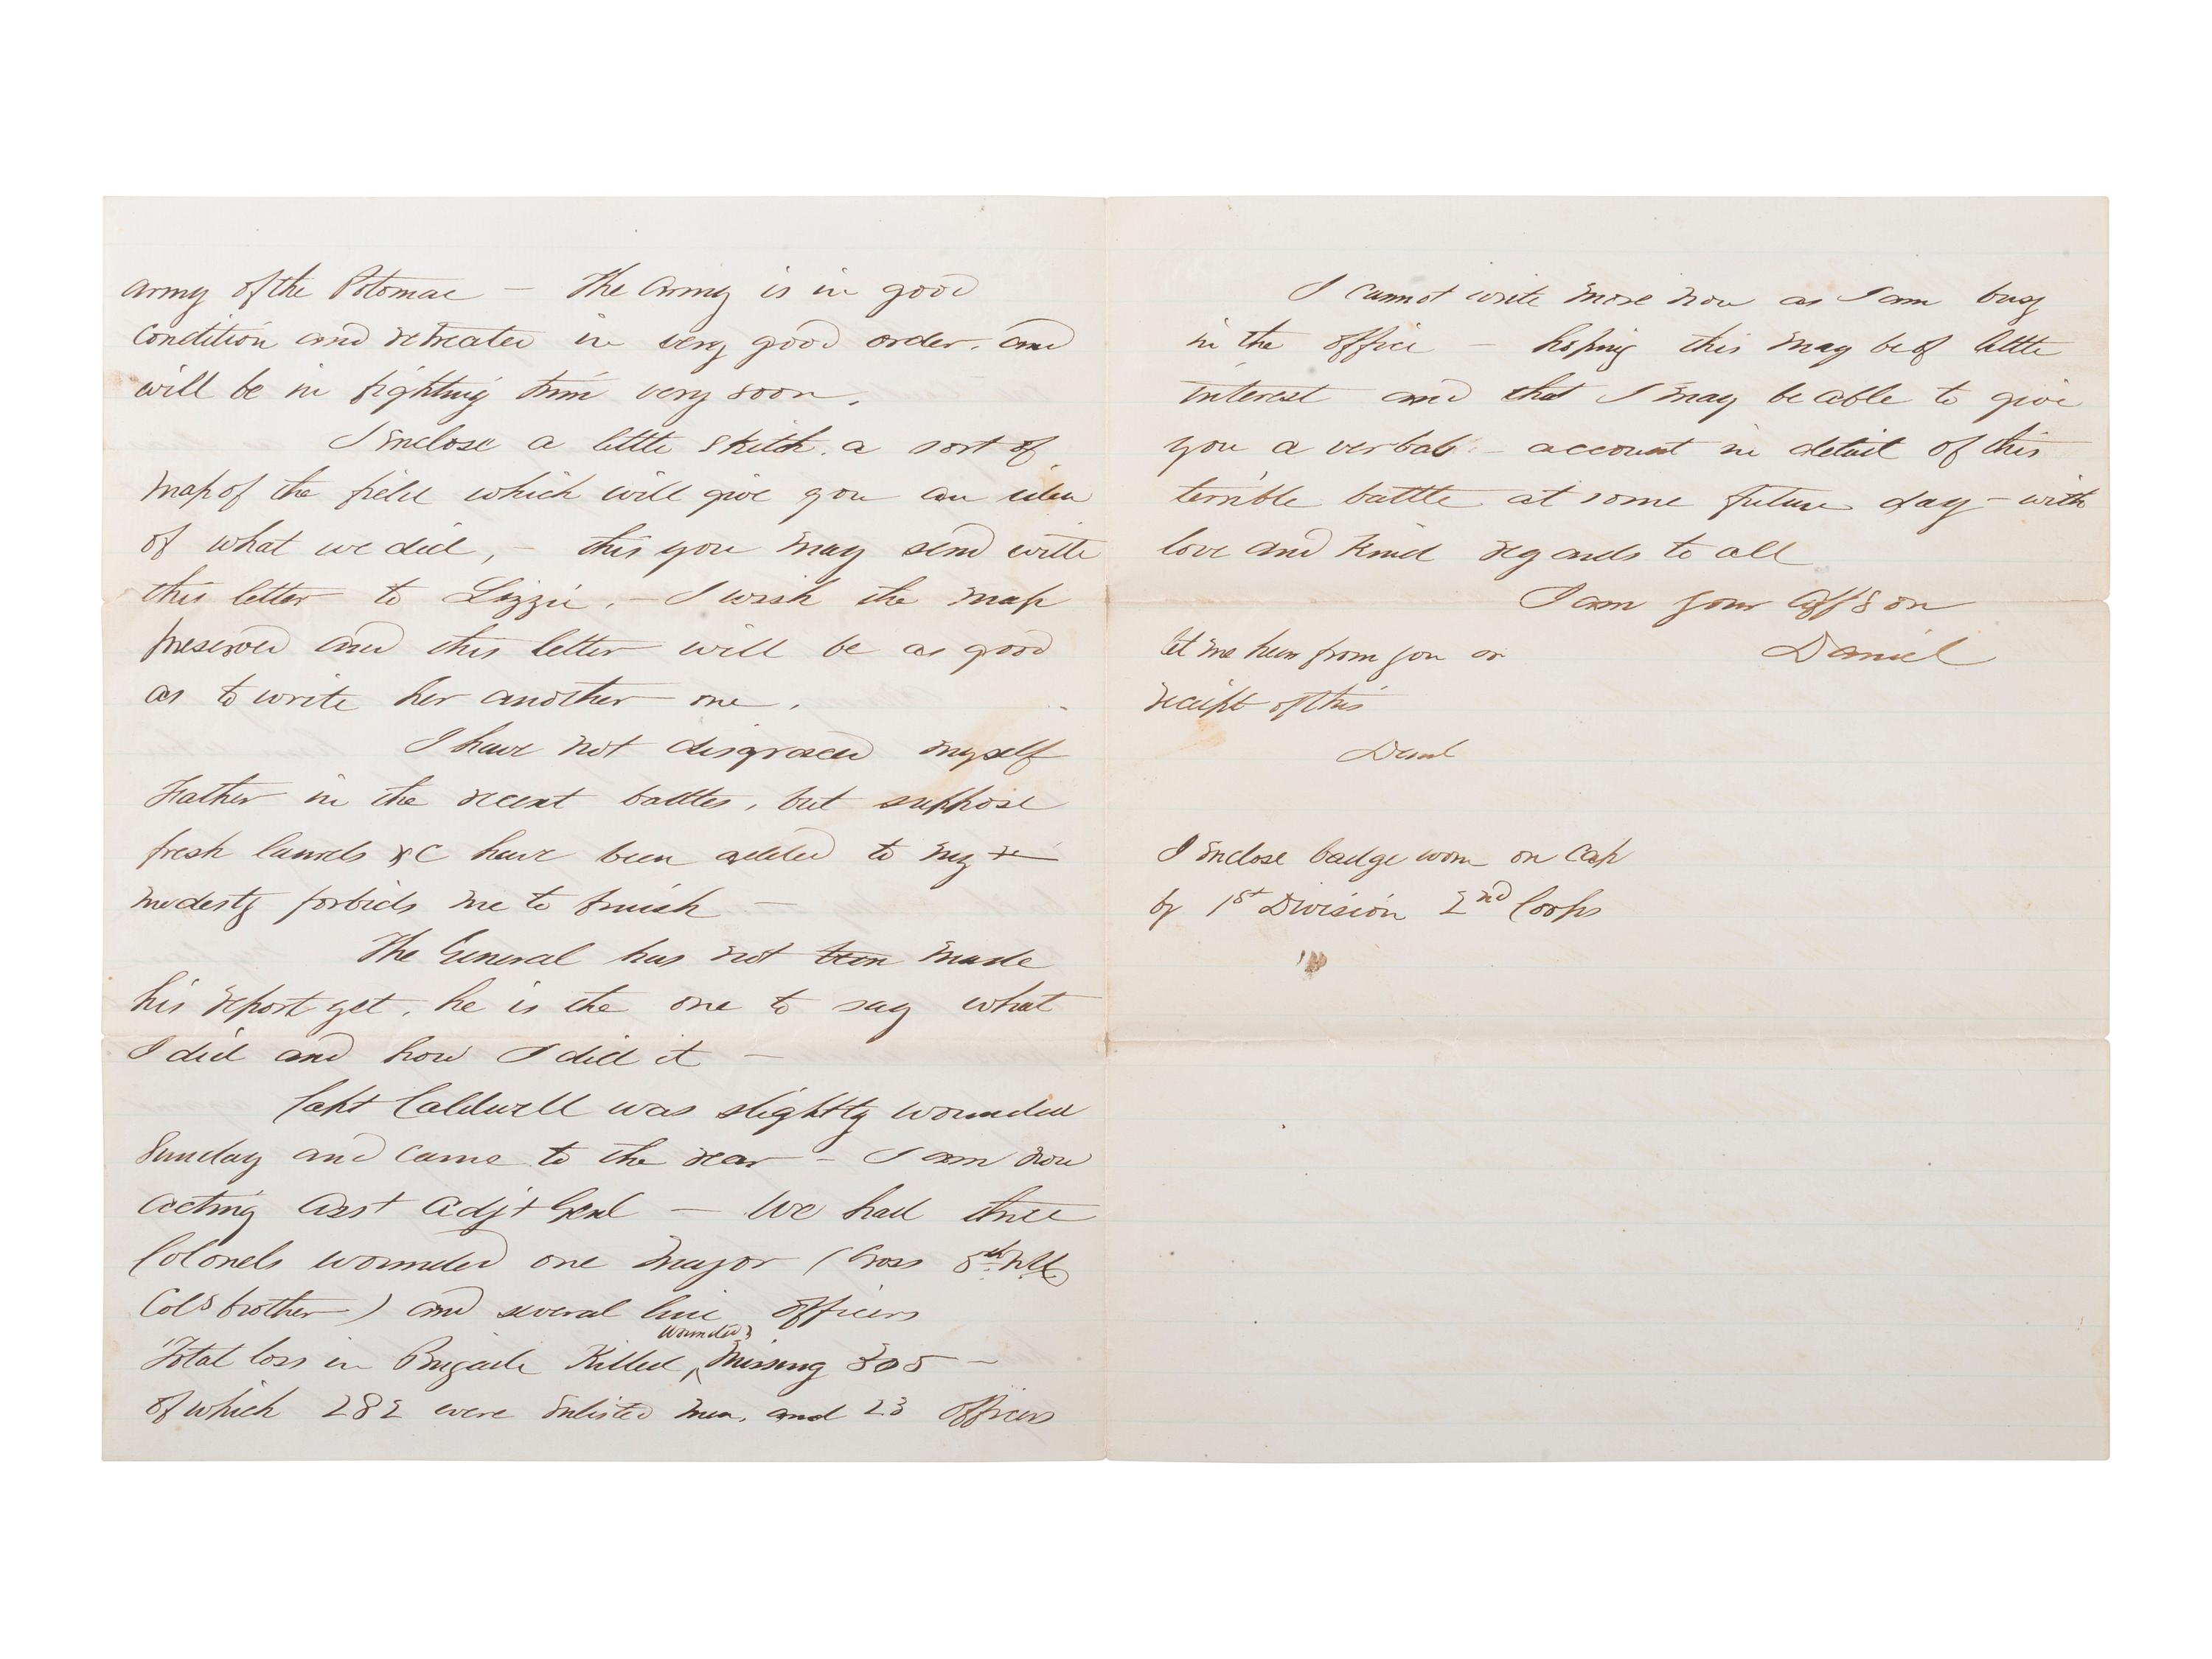 army of the Potomac — The Army is in good
condition and retreated in very good order. and
will be in fighting trim very soon.
I enclose a little sketch. a sort of
map of the field which will give you an idea
of what we did, — this you may send with
this letter to Lizzie. — I wish the map
preserved and this letter will be as good
as to write her another one.
I have not disgraced myself
Father in the recent battles, but suppose
fresh laurels &c have been added to my —
modesty forbids me to finish —
The General has not been made
his report yet, he is the one to say what
I did and how I did it —
Capt Caldwell was slightly wounded
Sunday and came to the rear — I am now
acting Asst Adjt Genl — We had three
Colonels wounded one Major (Cross 5th N.H.
Cols brother) and several line officers
Total loss in Brigade Killed, wounded & Missing 305 —
of which 282 were enlisted men, and 23 officers
I cannot write more now as I am busy
in the office — hoping this may be of little
interest and that I may be able to give
you a verbal — account in detail of this
terrible battle at some future day — with
love and kind regards to all
I am your aff son
Daniel
let me hear from you on
receipt of this
Danl
I enclose badge worn on cap
by 1st Division 2nd Corps